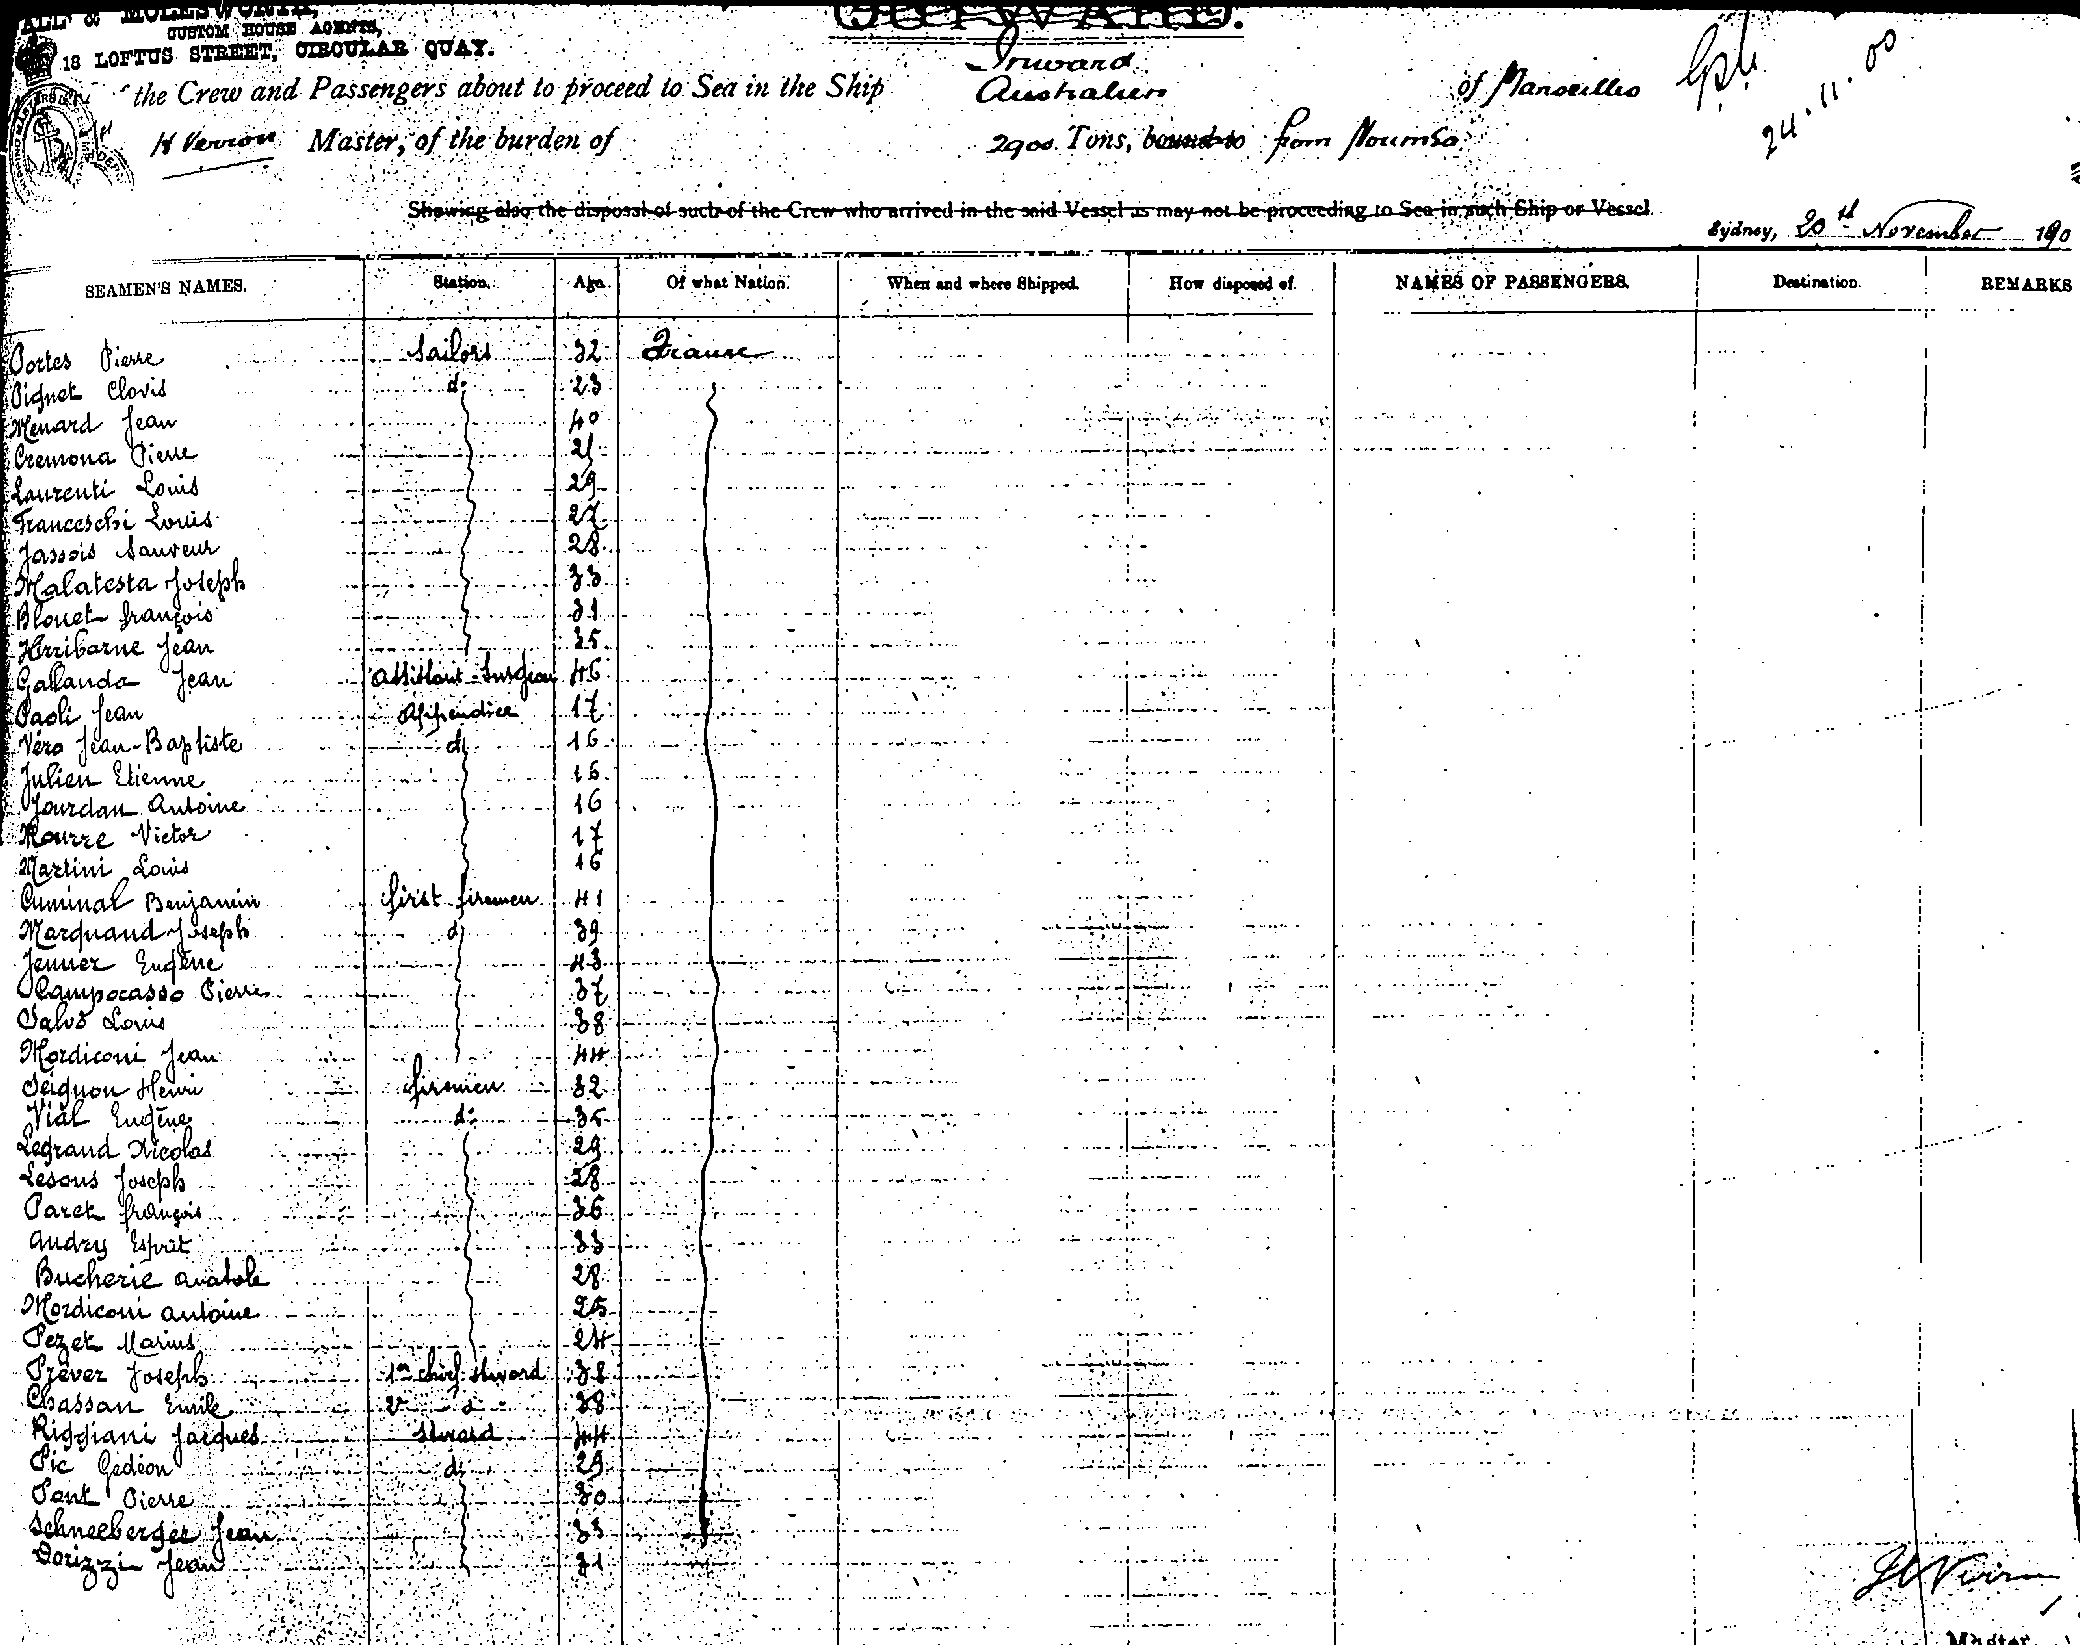 MOLESWORTH,
CUSTOM HOUSE AGENTS,
18 LOFTUS STREET, CIRCULAR QUAY.
OUTWARD.
Inward
the Crew and Passengers about to proceed to Sea in the Ship Australien of Marseilles
24.11.00
H Verron Master, of the burden of 2900 Tons, bound to from Noumea
Showing also the disposal of such of the Crew who arrived in the said Vessel as may not be proceeding to Sea in such Ship or Vessel.
Sydney, 20th November 190
SEAMEN'S NAMES. Station. Age. Of what Nation. When and where Shipped. How disposed of. NAMES OF PASSENGERS. Destination. REMARKS
Portes Pierre Sailors 32 France
Pignet Clovis do 23
Menard Jean 40
Cremona Pierre 21
Laurenti Louis 29
Franceschi Louis 27
Jassois Sauveur 28
Malatesta Joseph 33
Blouet françois 31
Hirribarne Jean 35
Gallanda Jean assistant-surgeon 46
Paoli Jean Apprendice 17
Véro Jean-Baptiste do 16
Julien Etienne 16
Jourdan Antoine 16
Mourre Victor 17
Martini Louis 16
Cuminal Benjamin first firemen 41
Marquand Joseph do 39
Jenner Eugène 43
Campocasso Pierre 37
Salvo Louis 38
Mordiconi Jean 44
Peignon Henri firemen 32
Vial Eugène do 35
Legrand Nicolas 29
Lesous Joseph 28
Paret françois 36
Audry Esprit 33
Bucherie anatole 28
Mordiconi antoine 25
Pezet Marius 24
Préver Joseph 1er chief stward 38
Chassan Emile 2e do 38
Riggiani Jacques stward 44
Pic Gédéon do 29
Pont Pierre 30
Schneeberger Jean 33
Dorizzi Jean 31
Master